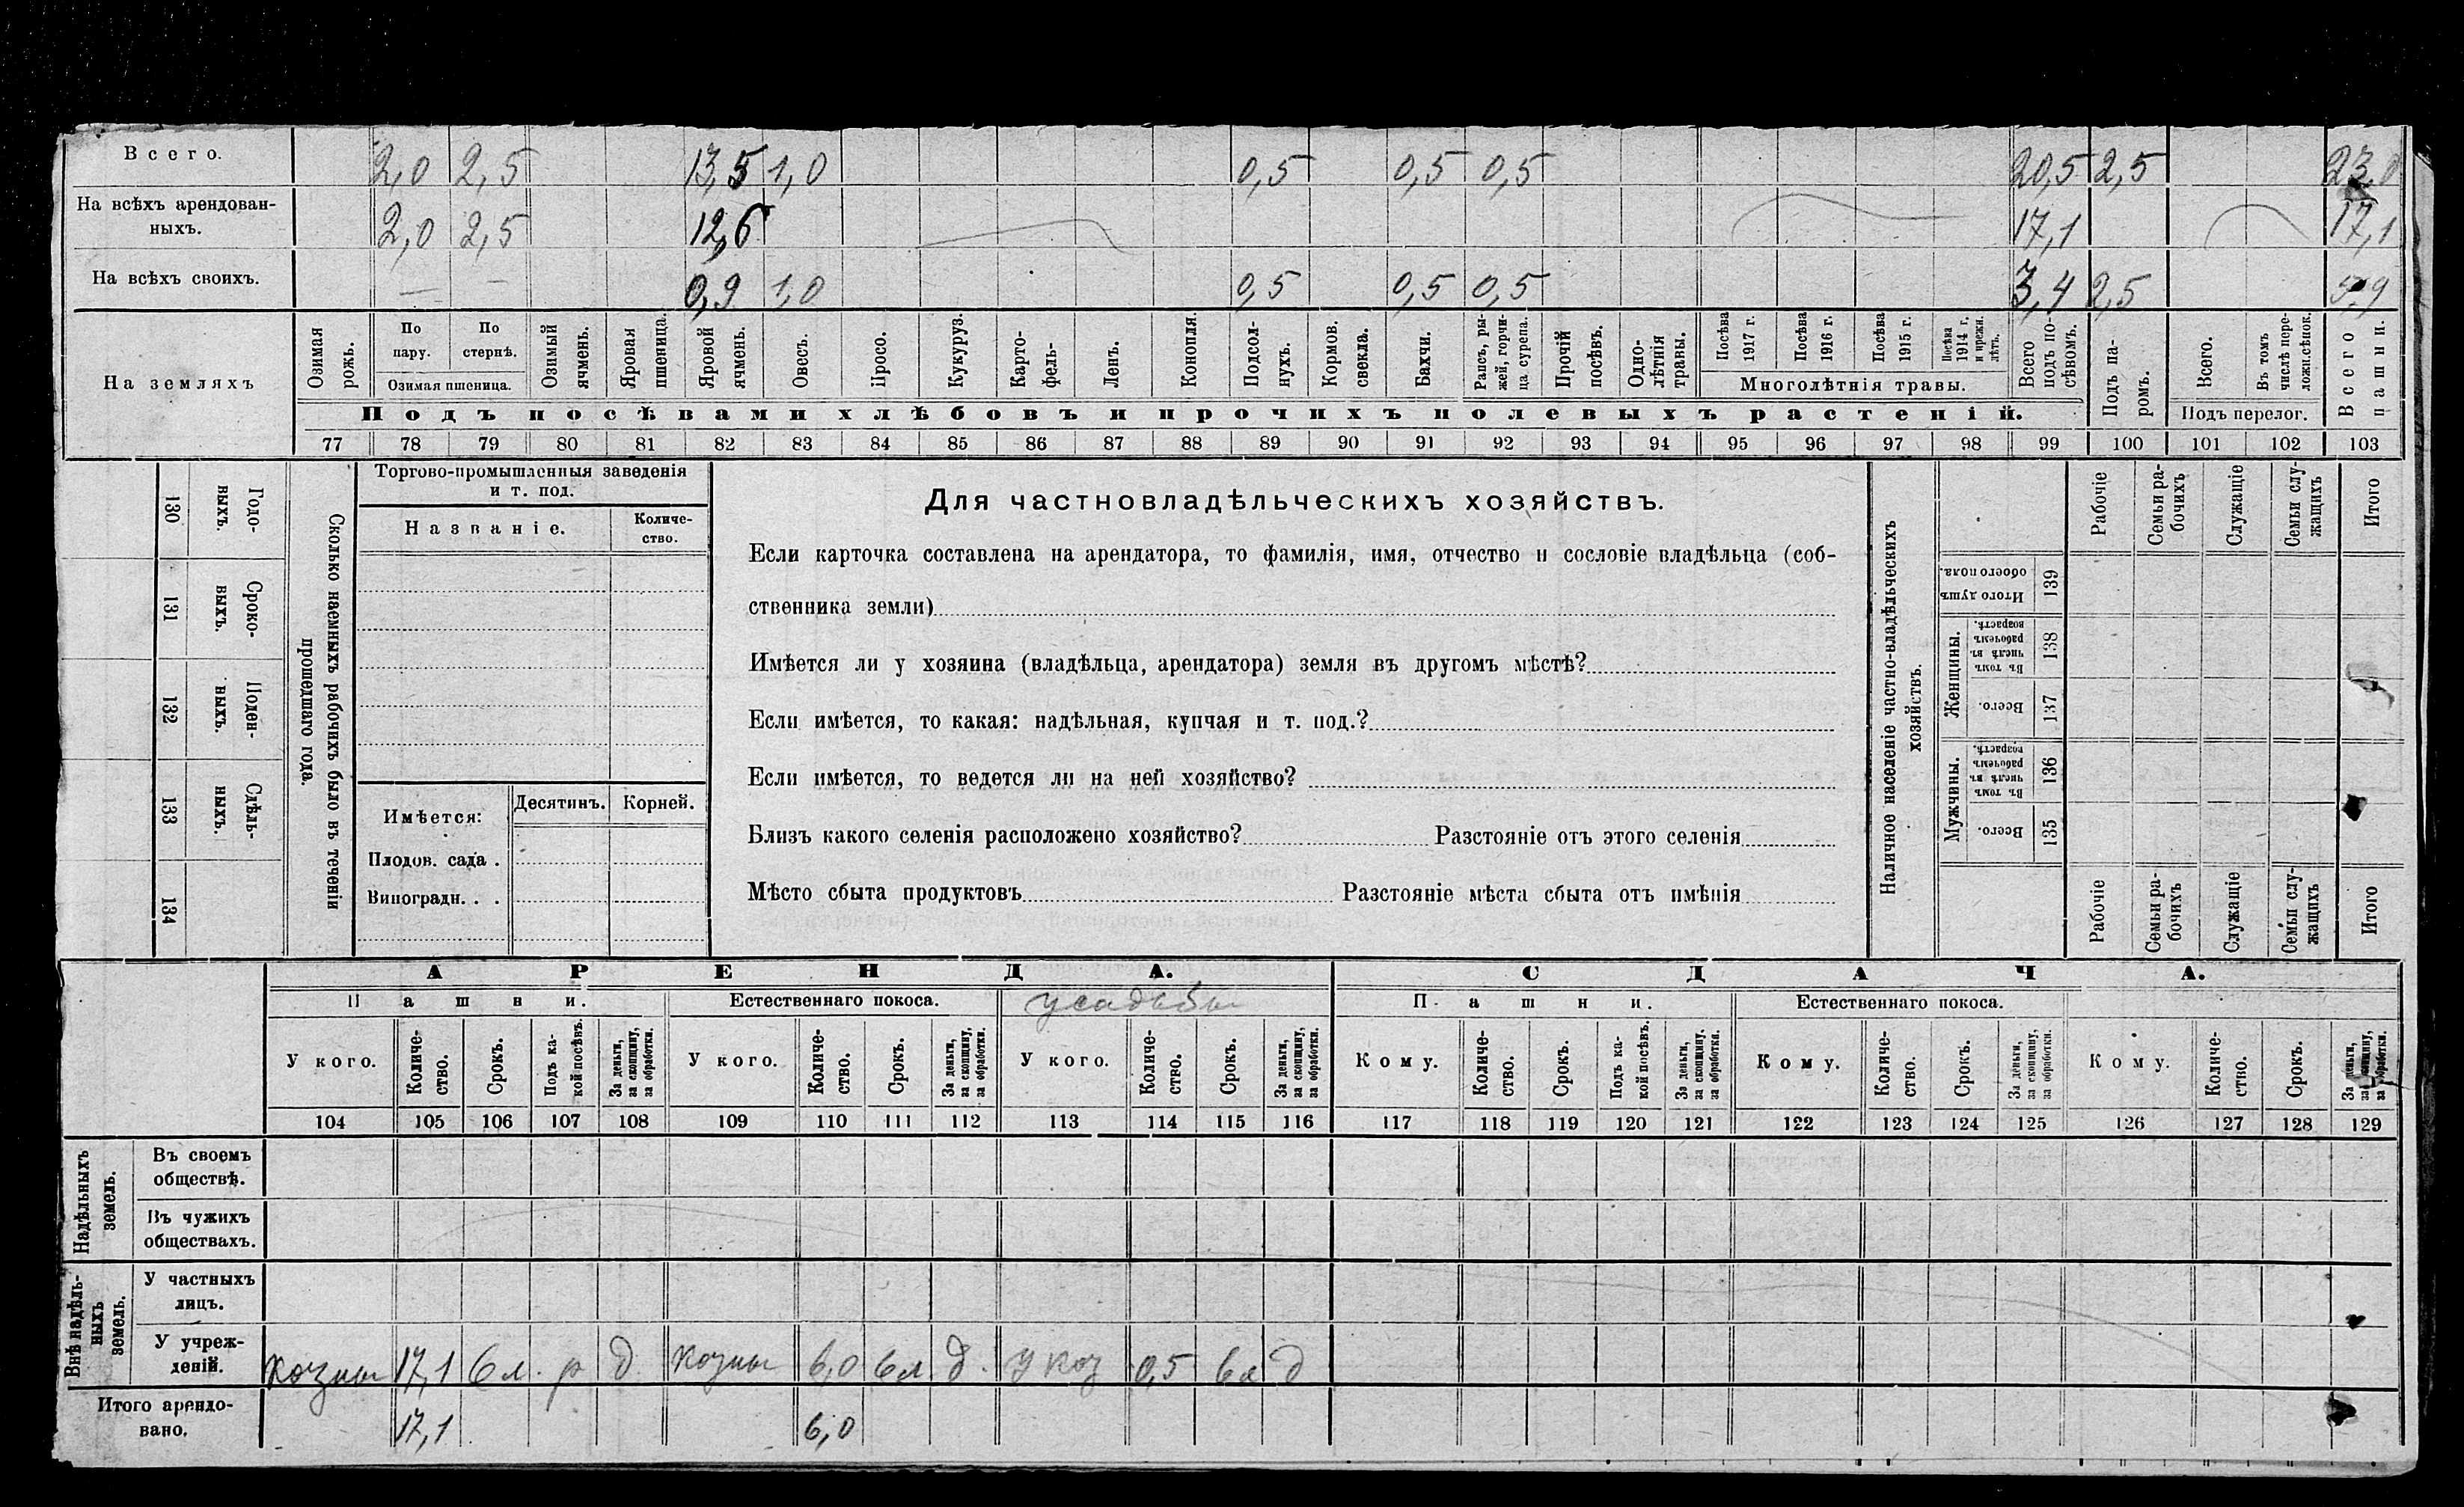 Всего. 2,0 2,5 13,5 1,0 0,5 0,5 0,5 20,5 2,5 23,0
На всѣхъ арендован-
ныхъ. 2,0 2,5 12,6 17,1 17,1
На всѣхъ своихъ. — — 0,9 1,0 0,5 0,5 0,5 3,4 2,5 5,9
На земляхъ
Озимая рожь.
По пару.
По стернѣ.
Озимая пшеница.
Озимый ячмень.
Яровая пшеница.
Яровой ячмень.
Овесъ.
Просо.
Кукуруз.
Карто-
фель-
Ленъ.
Конопля.
Подсол-
нухъ.
Кормов. свекла.
Бахчи.
Рапсъ, ры-
жей, горчи-
ца сурепа.
Прочій посѣвъ.
Одно-
лѣтнія травы.
Посѣва 1917 г.
Посѣва 1916 г.
Посѣва 1915 г.
Посѣва 1914 г. и прежн. лѣтъ.
Многолѣтнія травы.
Всего подъ по-
сѣвомъ.
Подъ па-
ромъ.
Всего.
Въ томъ числѣ пере-
ложн.сѣнок.
Подъ перелог.
Всего пашни.
Подъ посѣвами хлѣбовъ и прочихъ полевыхъ растеній.
77 78 79 80 81 82 83 84 85 86 87 88 89 90 91 92 93 94 95 96 97 98 99 100 101 102 103
130 Годо-
ныхъ.
131 Сроко-
ныхъ.
132 Поден-
ныхъ.
133 Сдѣль-
ныхъ.
134
Сколько наемныхъ рабочихъ было въ теченіи
прошедшаго года.
Торгово-промышленныя заведенія
и т. под.
Названіе.
Количе-
ство.
Имѣется: Десятинъ. Корней.
Плодов. сада .
Виноградн. . .
Для частновладѣльческихъ хозяйствъ.
Если карточка составлена на арендатора, то фамилія, имя, отчество и сословіе владѣльца (соб-
ственника земли)
Имѣется ли у хозяина (владѣльца, арендатора) земля въ другомъ мѣстѣ?
Если имѣется, то какая: надѣльная, купчая и т. под.?
Если имѣется, то ведется ли на ней хозяйство?
Близъ какого селенія расположено хозяйство? Разстояніе отъ этого селенія
Мѣсто сбыта продуктовъ Разстояніе мѣста сбыта отъ имѣнія
Наличное населеніе частно-владѣльческихъ
хозяйствъ.
Рабочіе
Семьи ра-
бочихъ
Служащіе
Семьи слу-
жащихъ
Итого
Итого душъ обоего пола. 139
Женщины.
Въ томъ числѣ въ рабочемъ возрастѣ. 138
Всего. 137
Мужчины.
Въ томъ числѣ въ рабочемъ возрастѣ. 136
Всего. 135
Рабочіе
Семьи ра-
бочихъ
Служащіе
Семьи слу-
жащихъ
Итого
АРЕНДА. СДАЧА.
Пашни. Естественнаго покоса. усадьбы Пашни. Естественнаго покоса.
У кого.
Количе-
ство.
Срокъ.
Подъ ка-
кой посѣвъ.
За деньги,
за скопщину,
за обработки.
У кого.
Количе-
ство.
Срокъ.
За деньги,
за скопщину,
за обработки.
У кого.
Количе-
ство.
Срокъ.
За деньги,
за скопщину,
за обработки.
Кому.
Количе-
ство.
Срокъ.
Подъ ка-
кой посѣвъ.
За деньги,
за скопщину,
за обработки.
Кому.
Количе-
ство.
Срокъ.
За деньги,
за скопщину,
за обработки.
Кому.
Количе-
ство.
Срокъ.
За деньги,
за скопщину,
за обработки.
104 105 106 107 108 109 110 111 112 113 114 115 116 117 118 119 120 121 122 123 124 125 126 127 128 129
Надѣльныхъ
земель.
Въ своемъ
обществѣ.
Въ чужихъ
обществахъ.
Внѣ надѣль-
ныхъ
земель.
У частныхъ
лицъ.
У учреж-
деній. казны 17,1 6 л. р д. казны 6,0 6 л д. У каз 0,5 6 л д
Итого арендо-
вано. 17,1 6,0